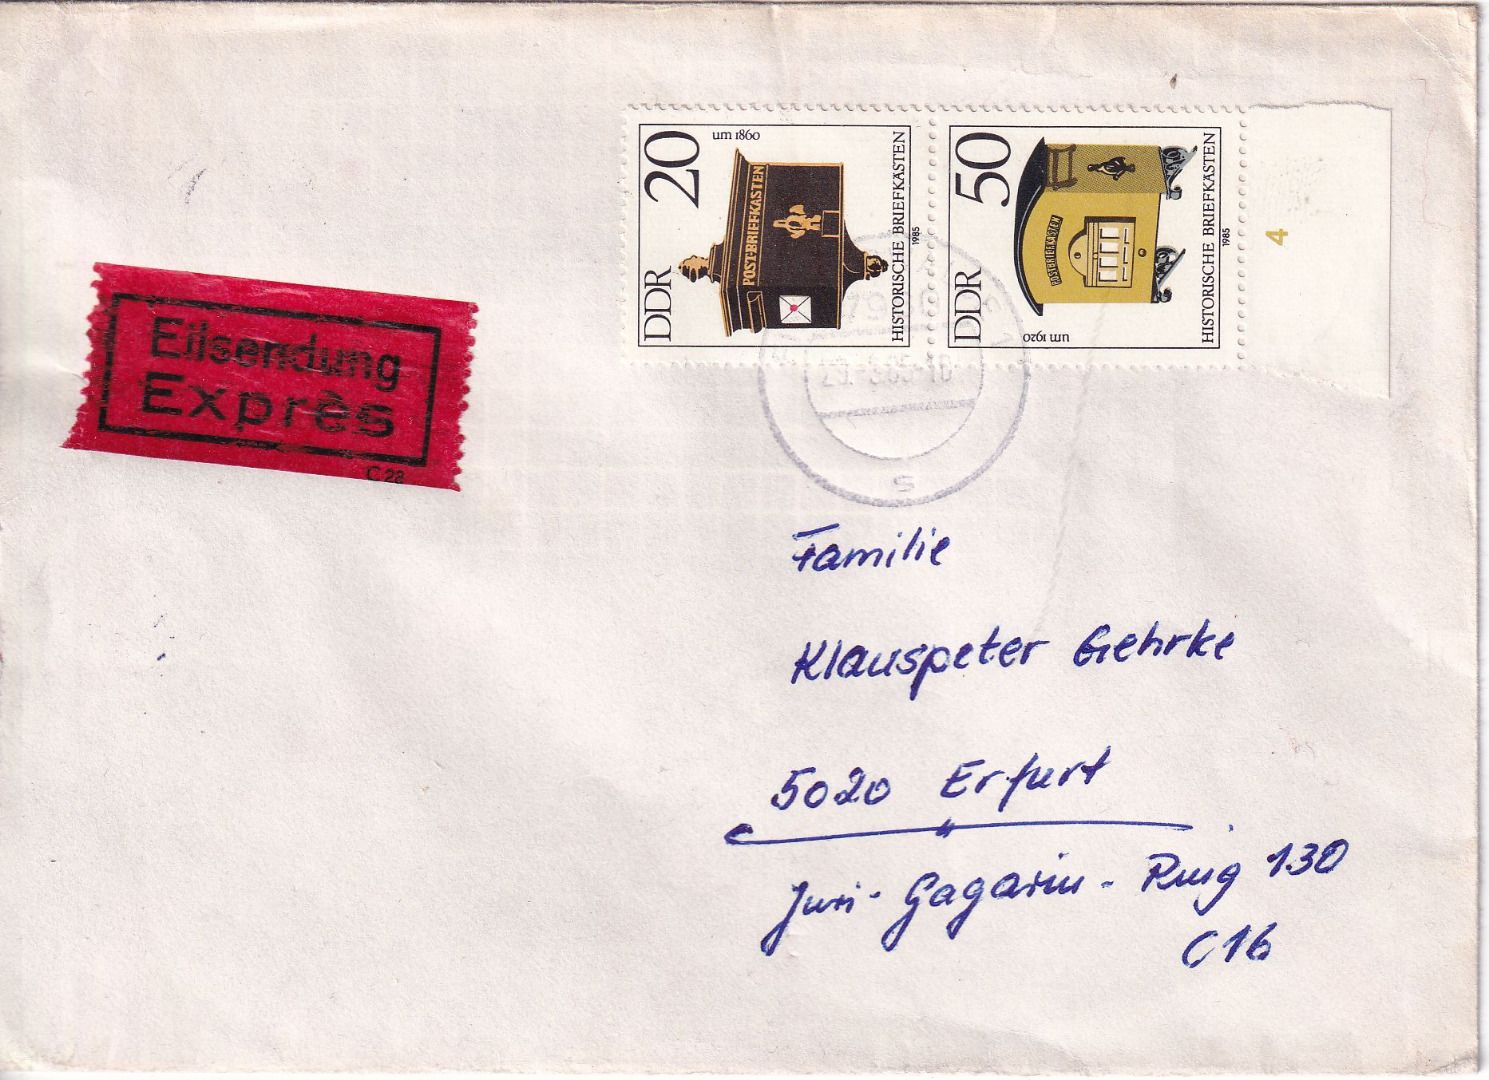 20
um 1860
POST-BRIEFKASTEN
DDR
HISTORISCHE BRIEFKÄSTEN
1985
50
POSTBRIEFKASTEN
DDR
um 1920
HISTORISCHE BRIEFKÄSTEN
1985
4
Eilsendung
Exprès
C 28
s
Familie
Klauspeter Gehrke
5020 Erfurt
Juri-Gagarin-Ring 130
C16